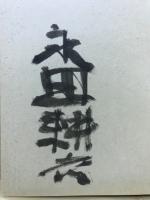 永田耕衣